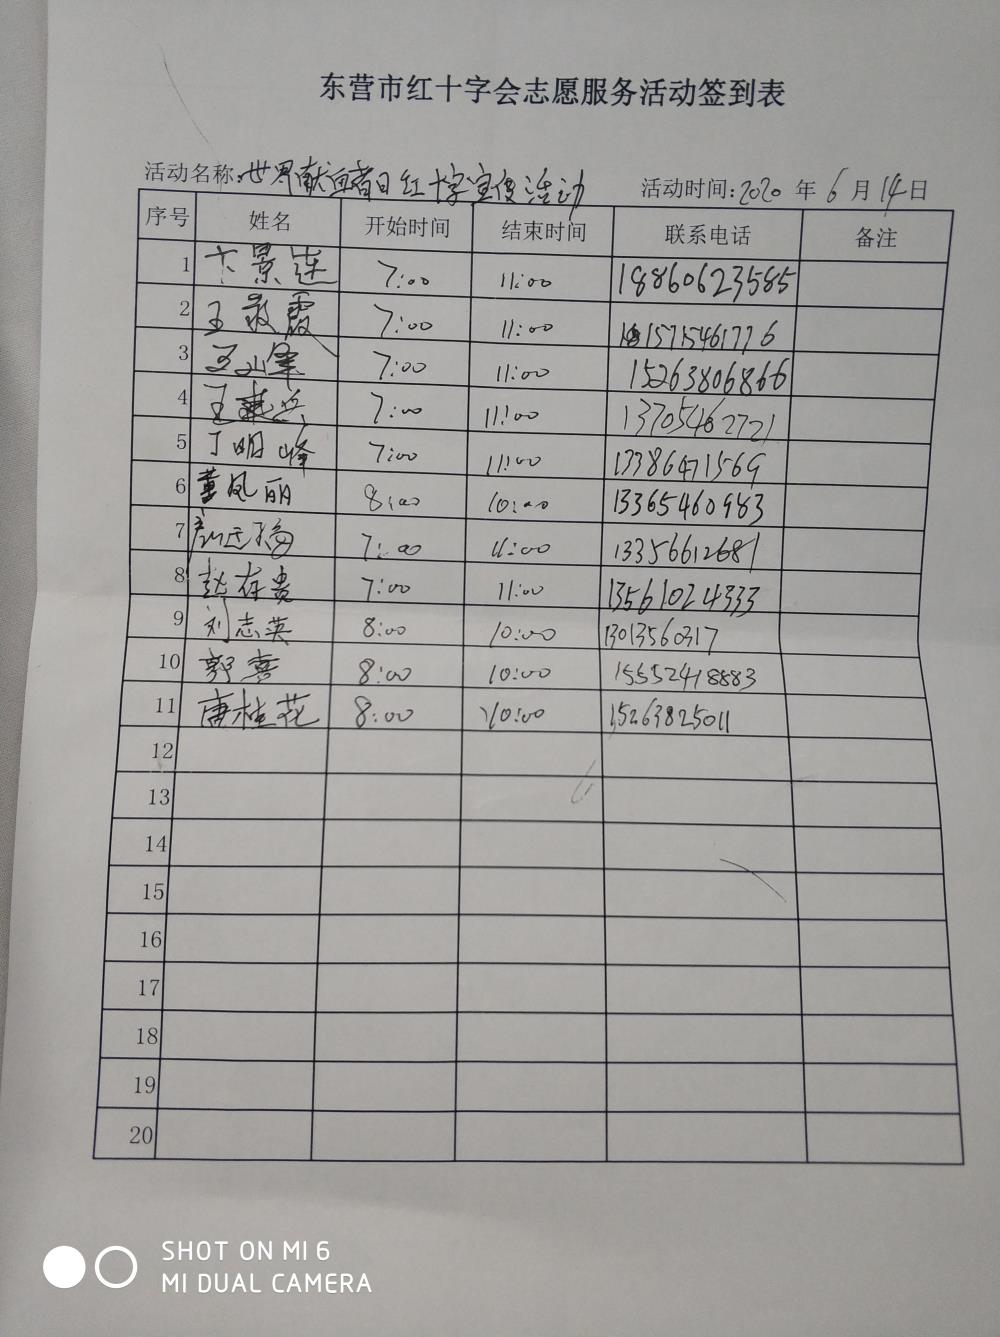 东营市红十字会志愿服务活动签到表
活动名称:世界献血者日红十字宣传活动 活动时间:2020 年 6 月 14 日
序号 姓名 开始时间 结束时间 联系电话 备注
1 卞景连 7:00 11:00 18860623585
2 王敬霞 7:00 11:00 15715461776
3 王小军 7:00 11:00 15263806866
4 王 7:00 11:00 13705462721
5 丁明峰 7:00 11:00 13386471569
6 董凤丽 8:00 10:00 13365460983
7 7:00 11:00 13356612681
8 赵存贵 7:00 11:00 13561024333
9 刘志英 8:00 10:00 13013560317
10 郭喜 8:00 10:00 15552418883
11 唐桂花 8:00 10:00 15263825011
12
13
14
15
16
17
18
19
20
SHOT ON MI 6
MI DUAL CAMERA